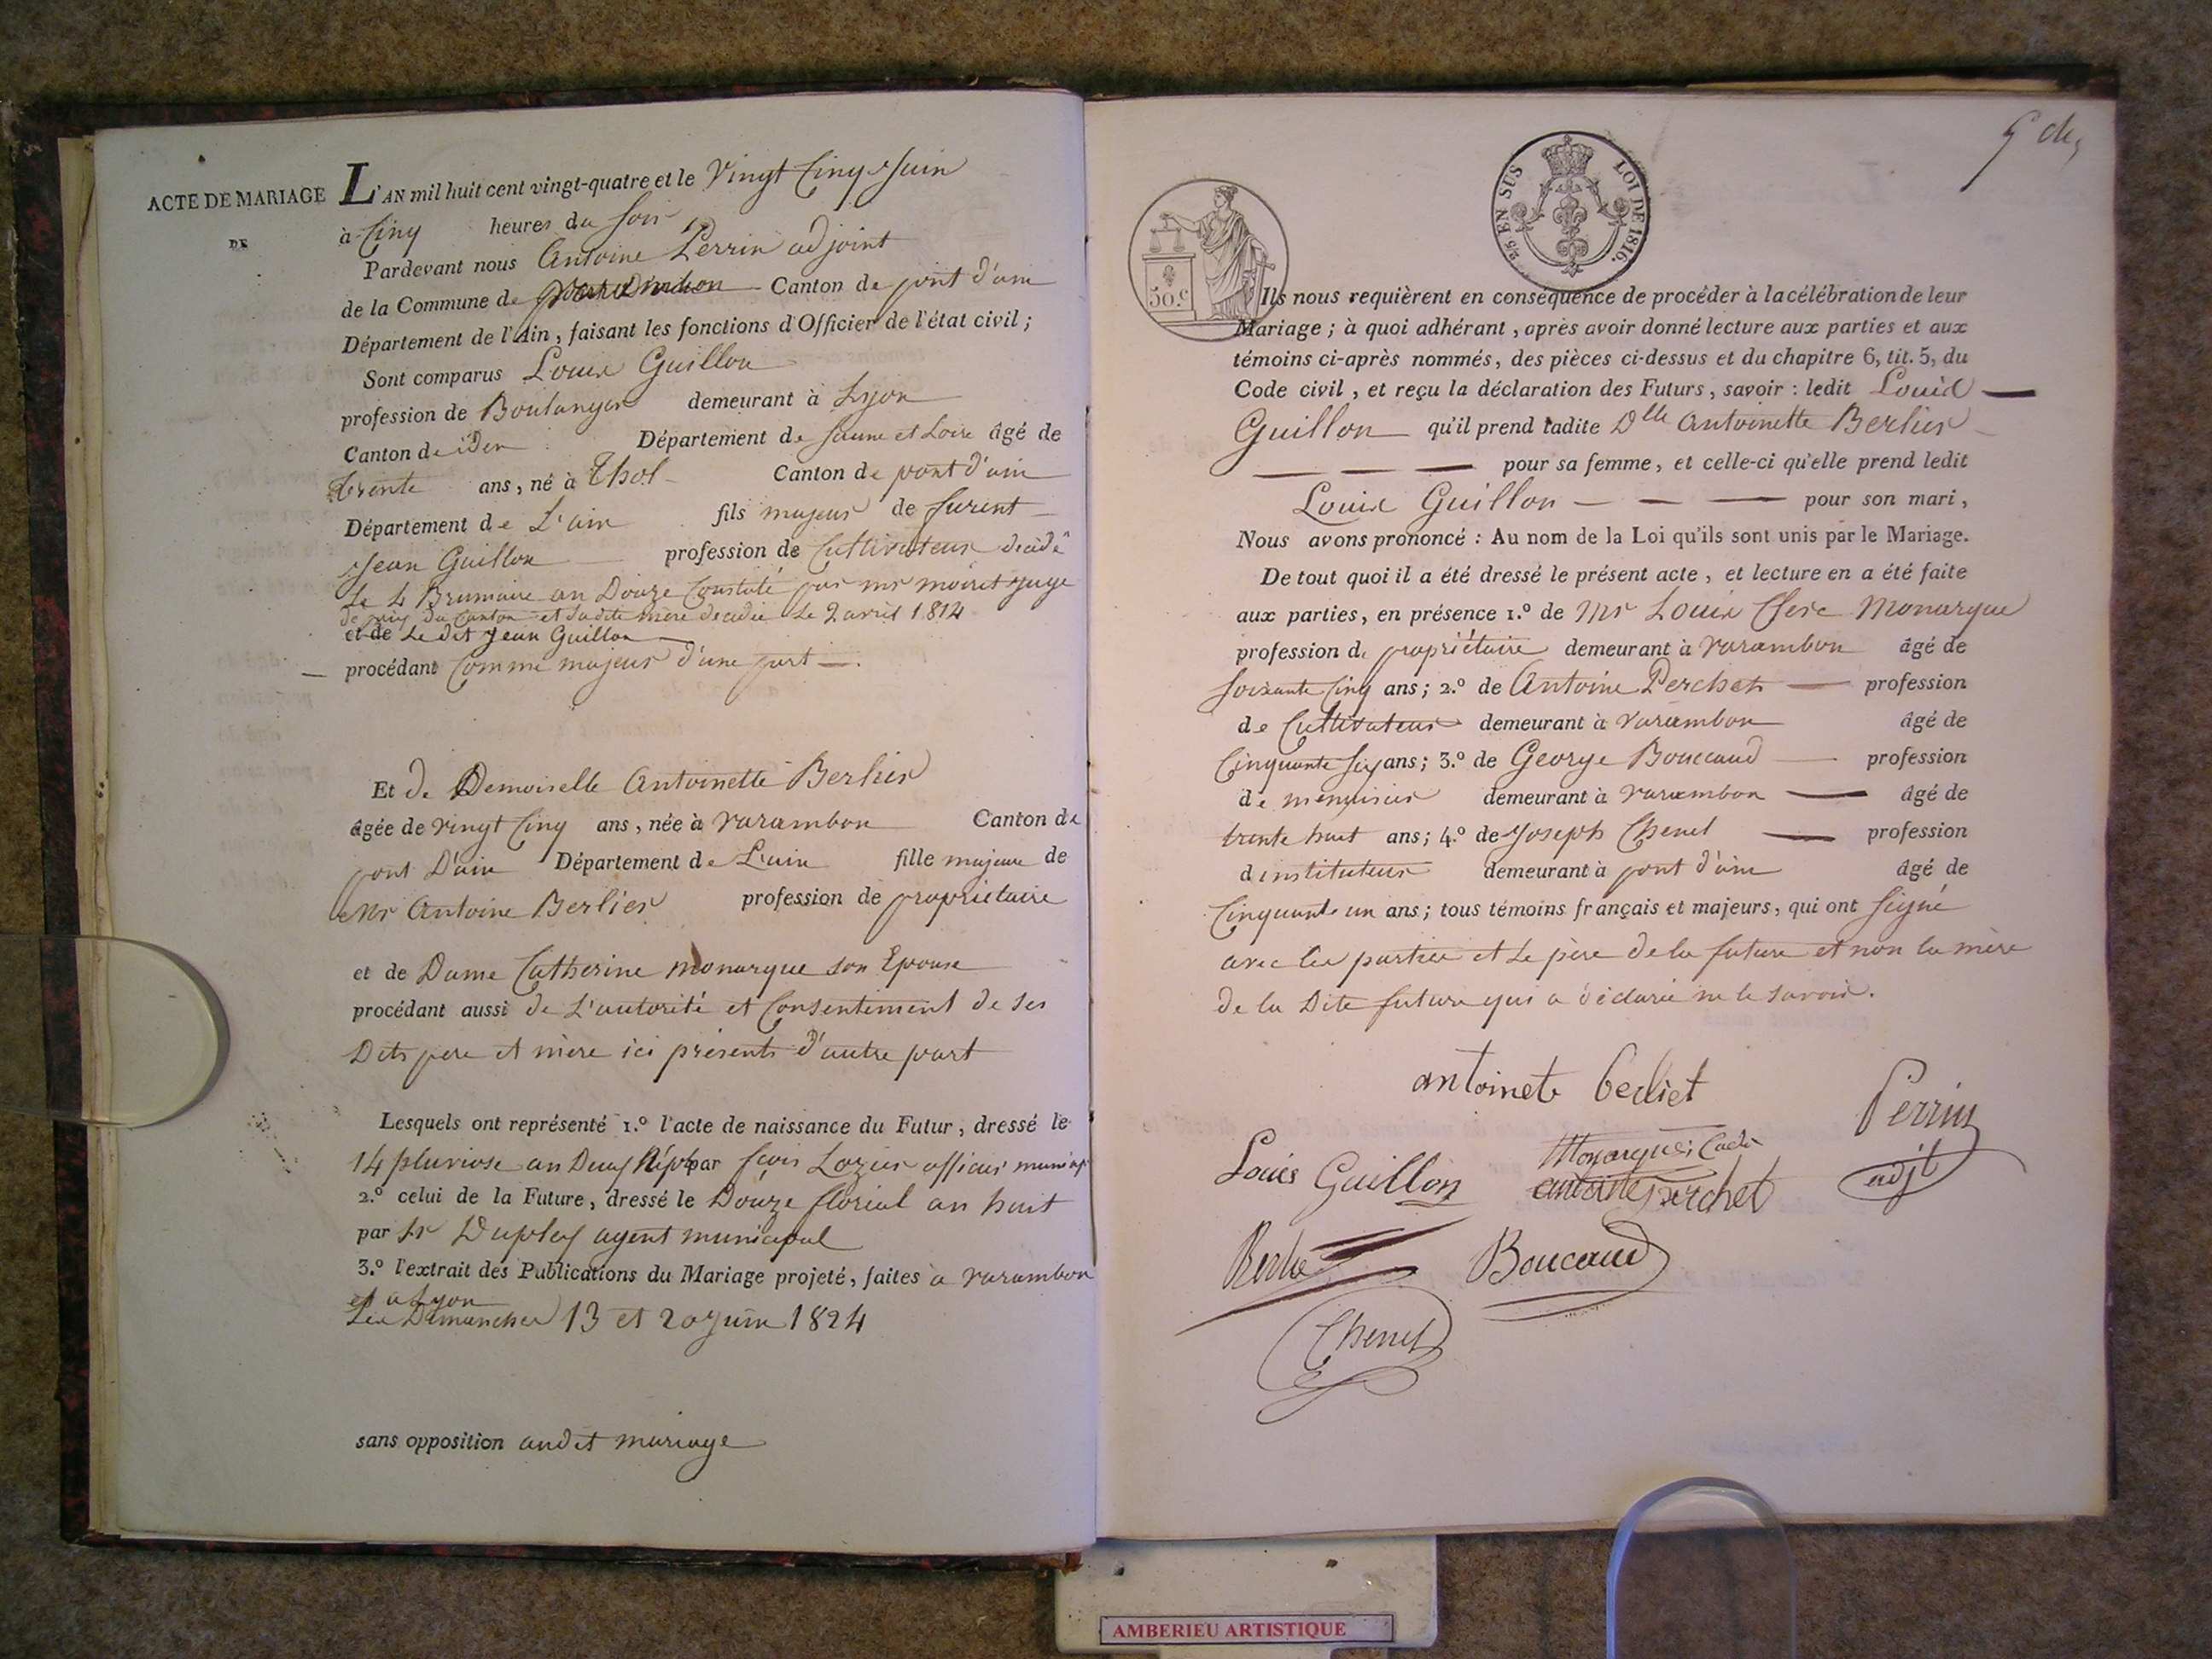 ACTE DE MARIAGE
DE
L'AN mil huit cent vingt-quatre et le Vingt Cinq Juin
à Cinq heures du Soir
Pardevant nous Antoine Perrin adjoint
de la Commune de Canton de pont d'ain
Département de l'Ain, faisant les fonctions d'Officier de l'état civil;
Sont comparus Louis Guillon
profession de Boulanger demeurant à Lyon
Canton de idem Département de Saune et Loire âgé de
trente ans, né à Thol Canton de pont d'ain
Département de L'ain fils majeur de furent
Jean Guillon profession de Cultivateur décédé
Le 4 Brumaire an Douze Constaté par mr moiret juge
de paix du Canton et sadite mère decedée Le 2 avril 1814
et de Le dit Jean Guillon
procédant Comme majeur d'une part
Et de Demoiselle Antoinette Berlier
âgée de vingt Cinq ans, née à varambon Canton de
pont D'ain Département de L'ain fille majeure de
Mr Antoine Berlier profession de propriétaire
et de Dame Catherine Monarque son Epouse
procédant aussi de L'autorité et Consentement de ses
Dits pere et mère ici présents d'autre part
Lesquels ont représenté 1.º l'acte de naissance du Futur, dressé le
14 pluviose an Deux Répb par officier municip
2.º celui de la Future, dressé le Douze floréal an huit
par Sr agent municipal
3.º l'extrait des Publications du Mariage projeté, faites à varambon
et a Lyon
Les Dimanches 13 et 20 juin 1824
sans opposition audit mariage
5 de,
25 EN SUS LOI DE 1816.
50.c
Ils nous requièrent en conséquence de procéder à la célébration de leur
Mariage; à quoi adhérant, après avoir donné lecture aux parties et aux
témoins ci-après nommés, des pièces ci-dessus et du chapitre 6, tit. 5, du
Code civil, et reçu la déclaration des Futurs, savoir: ledit Louis
Guillon qu'il prend ladite Dlle Antoinette Berlier
pour sa femme, et celle-ci qu'elle prend ledit
Louis Guillon pour son mari,
Nous avons prononcé: Au nom de la Loi qu'ils sont unis par le Mariage.
De tout quoi il a été dressé le présent acte, et lecture en a été faite
aux parties, en présence 1.º de Mr Louis Clerc Monarque
profession de propriétaire demeurant à varambon âgé de
Soixante Cinq ans; 2.º de Antoine Perchet profession
de Cultivateur demeurant à varambon âgé de
Cinquante Six ans; 3.º de George Bouccaud profession
de menuisier demeurant à varambon âgé de
trente huit ans; 4.º de Joseph Chenel profession
d instituteur demeurant à pont d'ain âgé de
Cinquante un ans; tous témoins français et majeurs, qui ont signé
avec les parties et le père de la future et non la mère
de la Dite future qui a déclaré ne le savoir.
antoinete berliet
Perrin
adjt
Louis Guillon
Monarque
antoine perchet
Boucaud
Chenel
AMBERIEU ARTISTIQUE